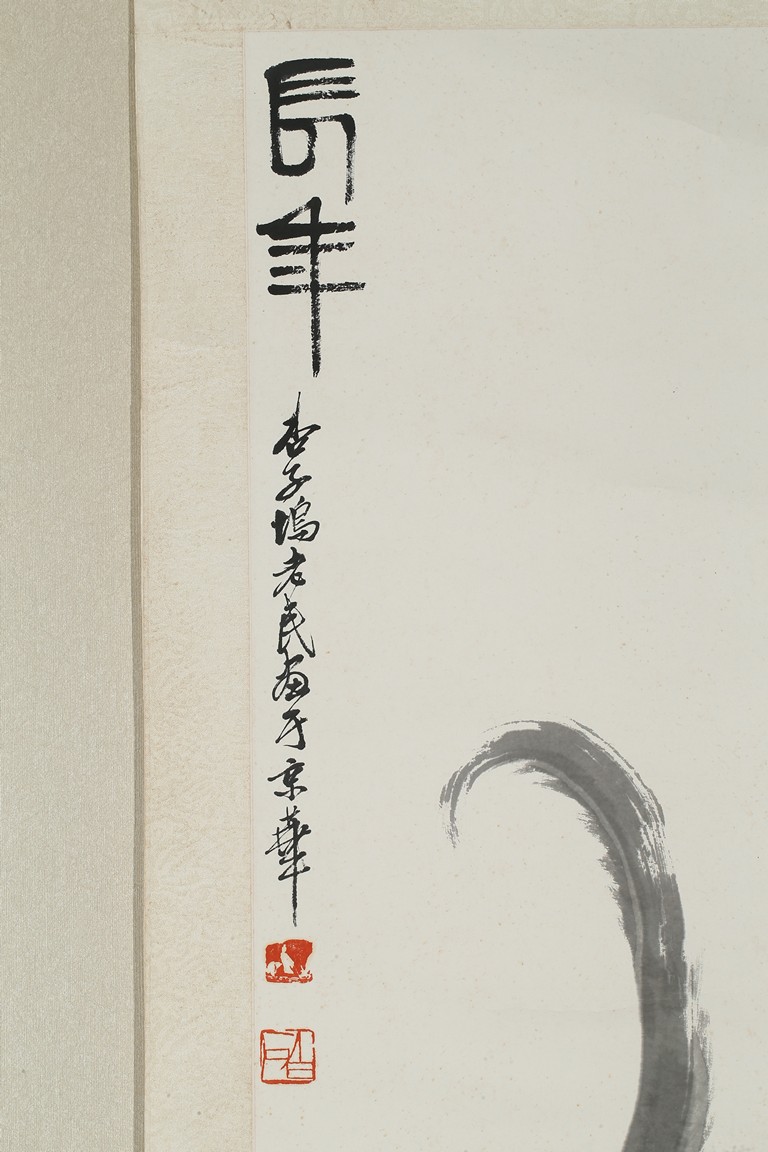 長年
杏子塢老民畫于京華